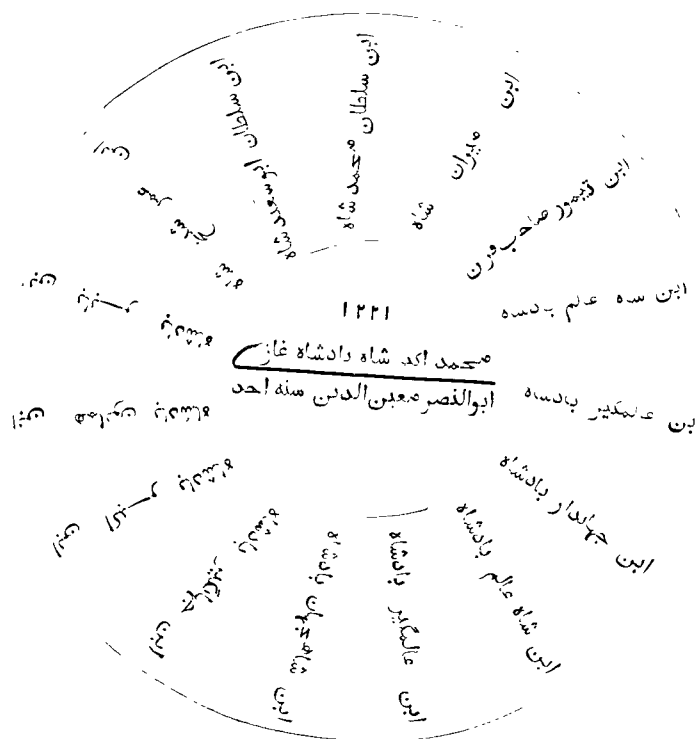 ١٢٢١
محمد اکبر شاه بادشاه غازی
ابوالنصر معین الدین سنه احد
ابن شاه عالم بادشاه
ابن عالمگیر بادشاه
ابن جهاندار بادشاه
ابن شاه عالم بادشاه
ابن عالمگیر بادشاه
ابن شاهجهان بادشاه
ابن جهانگیر بادشاه
ابن اکبر بادشاه
ابن همایون بادشاه
ابن بابر بادشاه
ابن عمر شیخ شاه
ابن سلطان ابو سعید شاه
ابن سلطان محمد شاه
ابن میران شاه
ابن تیمور صاحب قرن